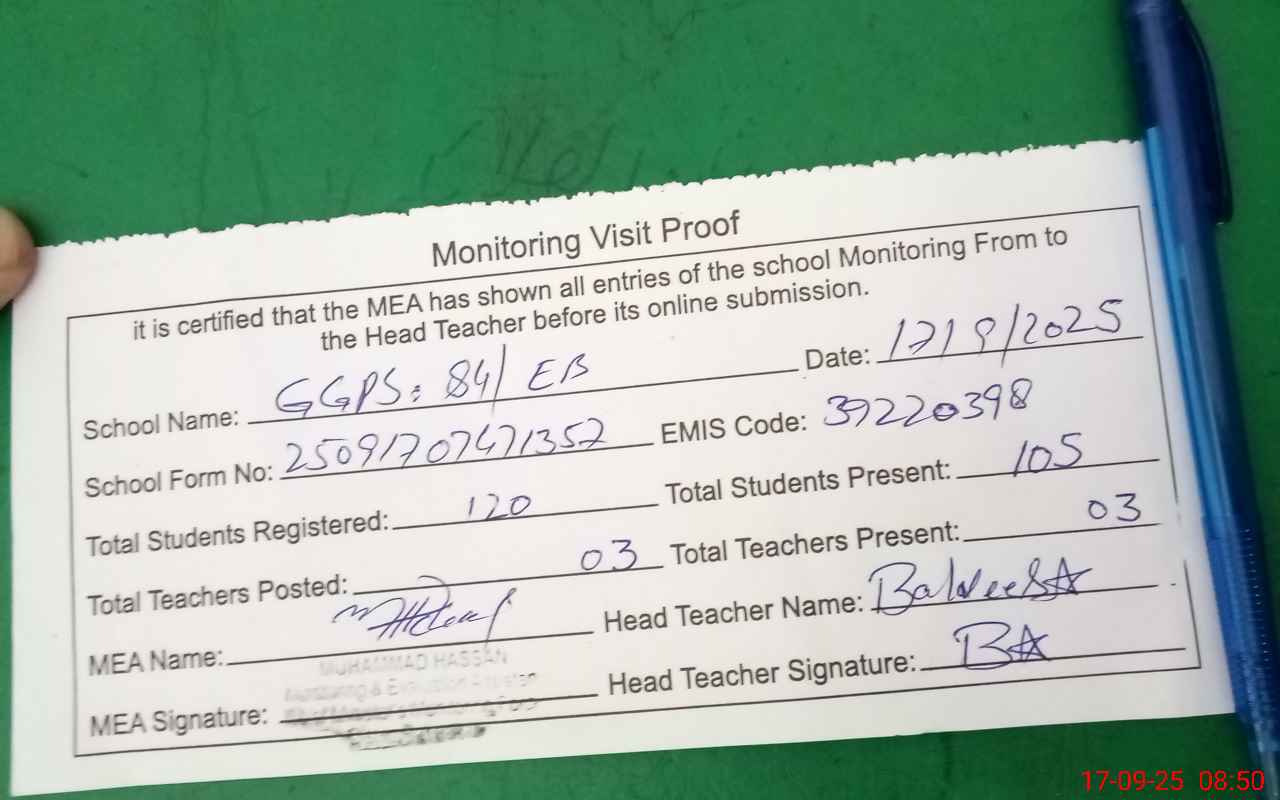 Monitoring Visit Proof
it is certified that the MEA has shown all entries of the school Monitoring From to
the Head Teacher before its online submission.
School Name: GGPS: 84/EB Date: 17/9/2025
School Form No: 25091707471352 EMIS Code: 39220398
Total Students Registered: 120 Total Students Present: 105
Total Teachers Posted: 03 Total Teachers Present: 03
MEA Name: Head Teacher Name:
MUHAMMAD HASSAN
Monitoring & Evaluation
MEA Signature: Head Teacher Signature:
17-09-25 08:50